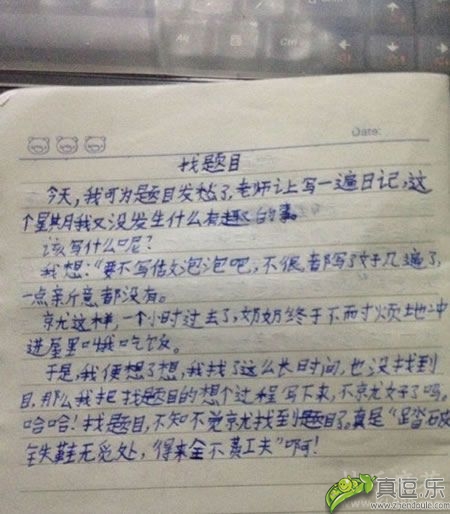 Alt
Ctrl
Date:
找题目
今天,我可为题目发愁了,老师让写一遍日记,这
个星期我又没发生什么有趣的事。
该写什么呢?
我想:“要不写估文泡泡吧,不很都写了好几遍了,
一点新意都没有。
就这样,一个小时过去了,奶奶终于不耐烦地冲
进屋里叫我吃饭。
于是,我便想了想,我找了这么长时间,也没找到
目,那么我把找题目的想个过程写下来,不就好了吗。
哈哈!找题目,不知不觉就找到题目了。真是“踏破
铁鞋无觅处,得来全不费工夫”啊!
真逗.乐
www.zhendoule.com